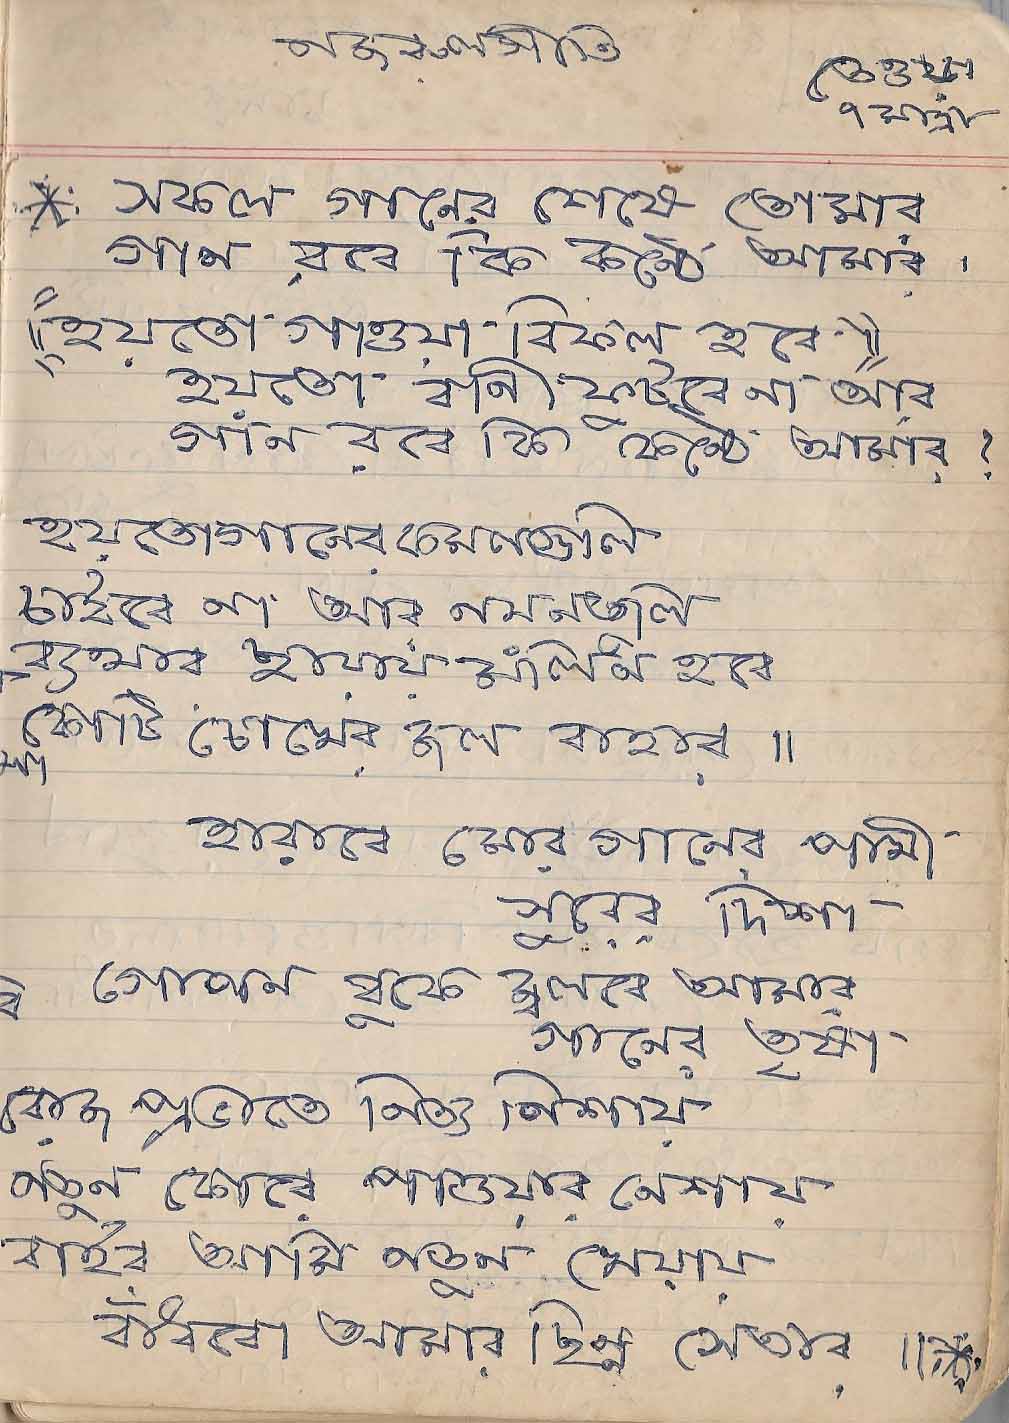 নজরুলগীতি
তেওড়া
৭ মাত্রা
সকল গানের শেষে তোমার
গান রবে কি কন্ঠে আমার ।
হয়তো গাওয়া বিফল হবে
হয়তো বানী ফুটবে না আর
গান রবে কি কন্ঠে আমার ?
হয়তো গানের কমলগুলি
চাইবে না আর নয়ন তুলি
ছায়ায় মলিন হবে
চোখের জল বাহার ॥
হারাবে মোর গানের পাখী
সুরের দিশা
গোপন বুকে জ্বলবে আমার
গানের তৃষা
রোজ প্রভাতে নিত্য নিশায়
নতুন কোরে পাওয়ার নেশায়
বাইব আমি নতুন খেয়ায়
বাঁধবো আমার ছিন্ন সেতার ॥